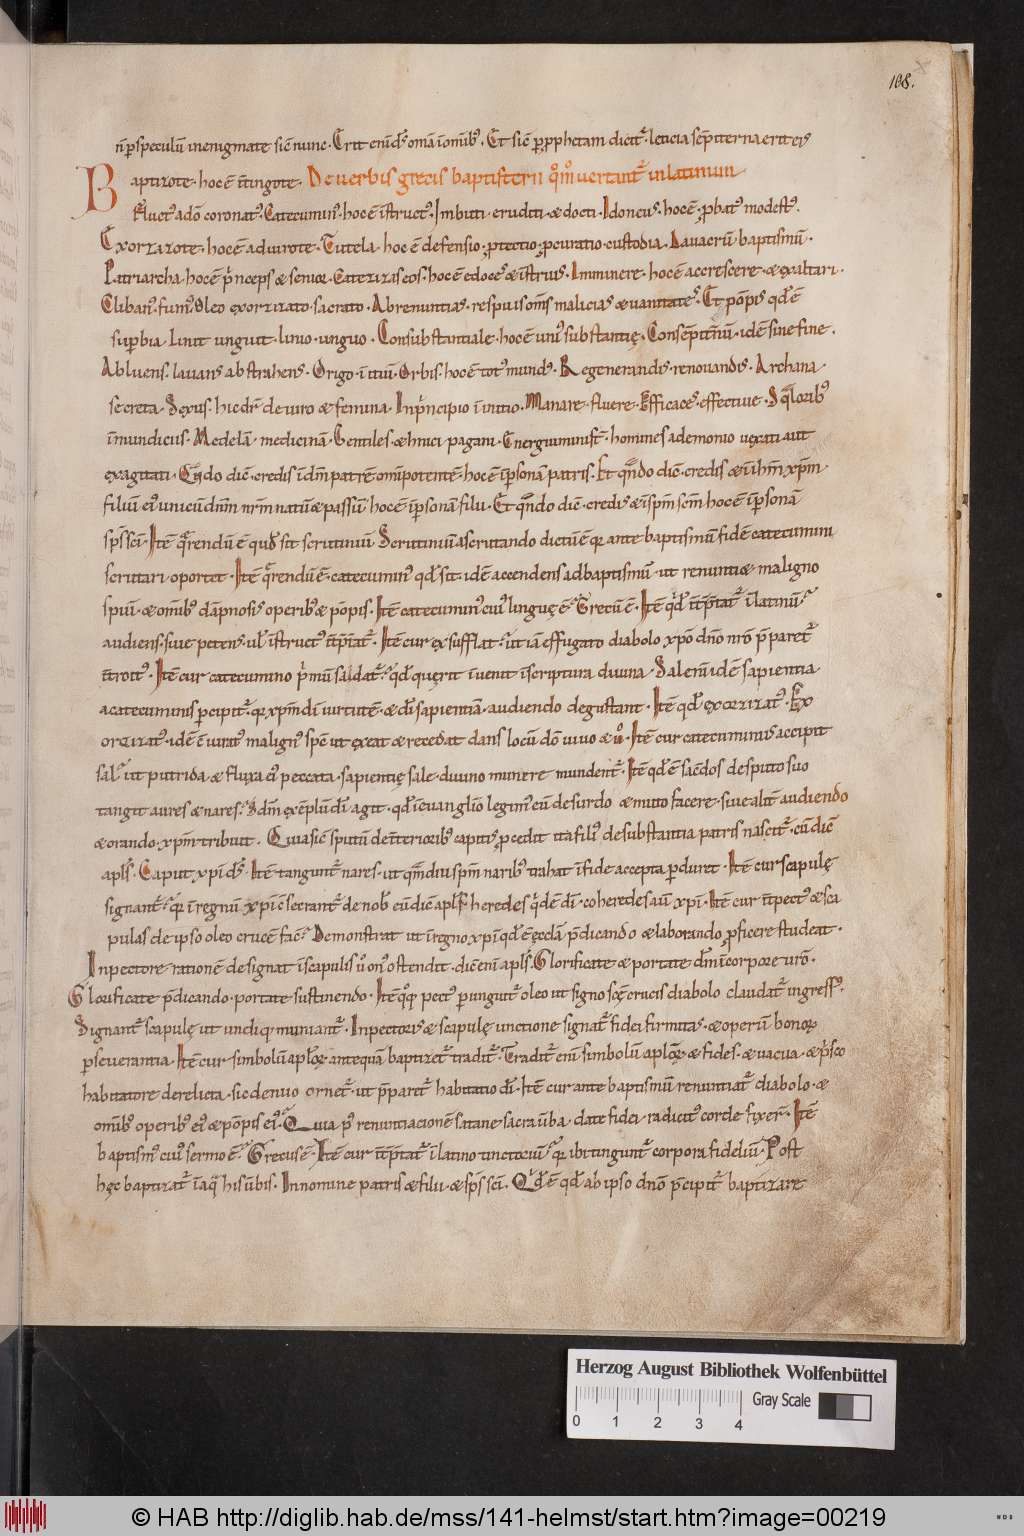 108.
n̄ p speculū in enigmate sic̄ nunc. Erit enī dſ̄ omā in omib;. Et sic̄ p ꝓphetam dicit᷑. leticia sēpiterna erit eis
Baptizote. hoc ē ītingote. De verbis grecis baptisterii q̊m̊ vertant᷑ in latinum
Auct᷒ adō coronat᷒. Catecumin᷒. hoc ē īstruct᷒. Imbuti. eruditi. & docti. Idoneus. hoc ē. ꝓbat᷒ modest᷒.
Exorzizote. hoc ē adiurote. Tutela. hoc ē defensio. ꝓtectio. ꝓcuratio. custodia. Lauacrū baptismū.
Patriarcha. hoc ē p̄nceps & senior. Catezizis eos. hoc ē edoces & īstruis. Imminere. hoc ē accrescere. & exaltari.
Cliban᷒. furn᷒. Oleo exorzizato. sacrato. Abrenuntias. respuis om̄s malicias & uanitates. Et pōpis qd̄ ē
superbia. Linit unguit. linio. unguo. Consubstantiale. hoc ē uni᷒ substantię. Consēpitn̄ū. idē sine fine.
Abluens. lauans abstrahens. Origo. initiū. Orbis. hoc ē tot᷒ mund᷒. Regenerandis. renouandis. Archana
secreta. Sexus. hic dr̄ de uiro & femina. In p̄ncipio. ī initio. Manare. fluere. Efficaces. effectiue. Sq̄lorib᷒
inmundiciis. Medelā. medicinā. Gentiles. ethnici pagani. Energuminis. homines a demonio uexati aut
exagitati. Qn̄do dic̄. credis ī dm̄ patrē omīpotentē. hoc ē ī psonā patris. Et qn̄do dic̄. credis & ī ihm̄ xp̄m
filiū ei᷒ unicū dn̄m nr̄m natū & passū. hoc ē ī psonā filii. Et qn̄do dic̄. credis & ī spm̄ scm̄ hoc ē ī psonā
sps̄ sci̅. Itē q̄rendū ē quid sit scrutiniū. Scrutiniū a scrutando dictū ē. q̄ ante baptismū fidē catecumini
scrutari oportet. Itē q̄rendū ē. catecumin᷒ qd̄ sit. idē accendens ad baptismū. ut renuntiet maligno
spiui. & omib᷒ dāpnosis operib᷒ & pōpis. Itē catecumin᷒ cui᷒ linguę ē? Grecū ē. Itē qd̄ īt̄p̄tat᷑ ī latinū?
audiens. siue petens. ul̄ īstruct᷒ īt̄p̄tat᷑. Itē cur exsufflat᷑? ut iā effugato diabolo xp̄o dn̄o nr̄o p̄paret᷑
ītroit᷒. Itē cur catecumino p̄mū sal dat᷑? qd̄ querit inuenit ī scriptura diuina. Sal enī idē sapientia
a catecuminis pcipit᷑. q̄ xp̄m di̅ uirtutē. & di̅ sapientiā. audiendo degustant. Itē qd̄ exorzizat᷒. Ex
orzizat᷒. idē ē iurat᷒ malign᷒ spc̄ ut exeat & recedat dans locū dō uiuo & u᷒. Itē cur catecuminus accipit
sal? ut putrida & fluxa ei᷒ peccata. sapientię sale. diuino munere mundent᷑. Itē qd̄ ē sacdos de sputo suo
tangit aures & nares? Ad m̄ exēplū di̅ agit. qd̄ ī euanglio legim᷒ eū de surdo & muto facere. siue alit̄ audiendo
& orando. xp̄m tribuit. Quia sic̄ sputū de īteriorib᷒ capitis ꝓcedit ita fili᷒ de substantia patris nascit᷑. cū dic̄
apls̄. Caput xp̄i ds̄. Itē tangunt᷑ nares. ut qm̄diu spm̄ narib᷒ trahat ī fide accepta pduret. Itē cur scapulę
signant᷑? q̄ ī regnū xp̄i cōsecrant᷑ de nob᷒ cū dic̄ apls̄. heredes q̄dē di̅. coheredes aū xp̄i. Itē cur ī pect᷒ & sca
pulas de ipso oleo crucē fac̄? Demonstrat ut ī regno xp̄i qd̄ ē ęccla p̄dicando & laborando ꝓficere studeat.
In pectore rationē designat ī scapulis ū on᷒ ostendit. dic̄ enī apls̄. Glorificate & portate dm̄ ī corpore uro̅.
Glorificate p̄dicando. portate sustinendo. Itē q̊q̨ pect᷒ pungunt᷑ oleo ut signo scē crucis diabolo claudat᷑ ingress᷒.
Signant᷑ scapulę ut undiq̨ muniant᷑. In pectoris & scapulę unctione signat᷑ fidei firmitas. & operū bonoꝝ
pseuerantia. Itē cur simbolū aploꝝ antequā baptizet᷑ tradit᷑. Tradit᷑ enī simbolū aploꝝ & fides. & uacua. & p̄sco
habitatore derelicta. sic denuo ornet᷑. ut p̄paret᷑ habitatio di̅. Itē cur ante baptismū renuntiat᷑ diabolo. &
omib᷒ operib᷒ ei᷒ & pōpis ei᷒? Quia p᷒ renuntiacionē satane sacra ūba. date fidei. radicit᷒ corde fixer̄. Itē
baptism᷒ cui᷒ sermo ē? Grecus ē. Itē cur īt̄p̄tat᷑ ī latino tinctociū? q̄ ibi tingunt᷑ corpora fideliū. Post
hęc baptizat᷑ ī aq̄ his ūbis. In nomine patris & filii & sps̄ sci̅. Qd̄ ē qd̄ ab ipso dn̄o p̄cipit᷑ baptizare
Herzog August Bibliothek Wolfenbüttel
0 1 2 3 4 Gray Scale
© HAB http://diglib.hab.de/mss/141-helmst/start.htm?image=00219